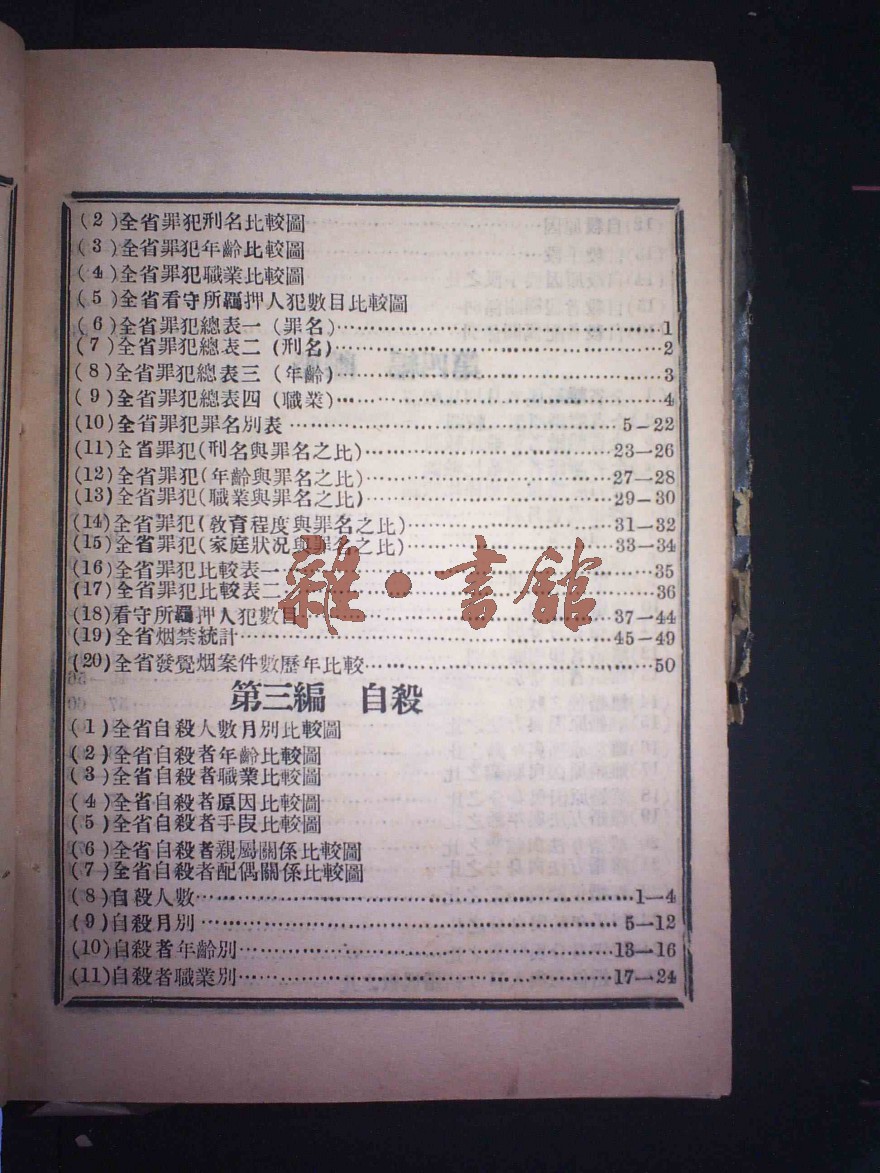 (2)全省罪犯刑名比較圖
(3)全省罪犯年齡比較圖
(4)全省罪犯職業比較圖
(5)全省看守所羈押人犯數目比較圖
(6)全省罪犯總表一(罪名)……1
(7)全省罪犯總表二(刑名)……2
(8)全省罪犯總表三(年齡)……3
(9)全省罪犯總表四(職業)……4
(10)全省罪犯罪名別表……5—22
(11)全省罪犯(刑名與罪名之比)……23—26
(12)全省罪犯(年齡與罪名之比)……27—28
(13)全省罪犯(職業與罪名之比)……29—30
(14)全省罪犯(敎育程度與罪名之比)……31—32
(15)全省罪犯(家庭狀况與罪名之比)……33—34
(16)全省罪犯比較表一……35
(17)全省罪犯比較表二……36
(18)看守所羈押人犯數目……37—44
(19)全省烟禁統計……45—49
(20)全省發覺烟案件數歷年比較……50
雜·書館
第三編 自殺
(1)全省自殺人數月別比較圖
(2)全省自殺者年齡比較圖
(3)全省自殺者職業比較圖
(4)全省自殺者原因比較圖
(5)全省自殺者手段比較圖
(6)全省自殺者親屬關係比較圖
(7)全省自殺者配偶關係比較圖
(8)自殺人數……1—4
(9)自殺月別……5—12
(10)自殺者年齡別……13—16
(11)自殺者職業別……17—24